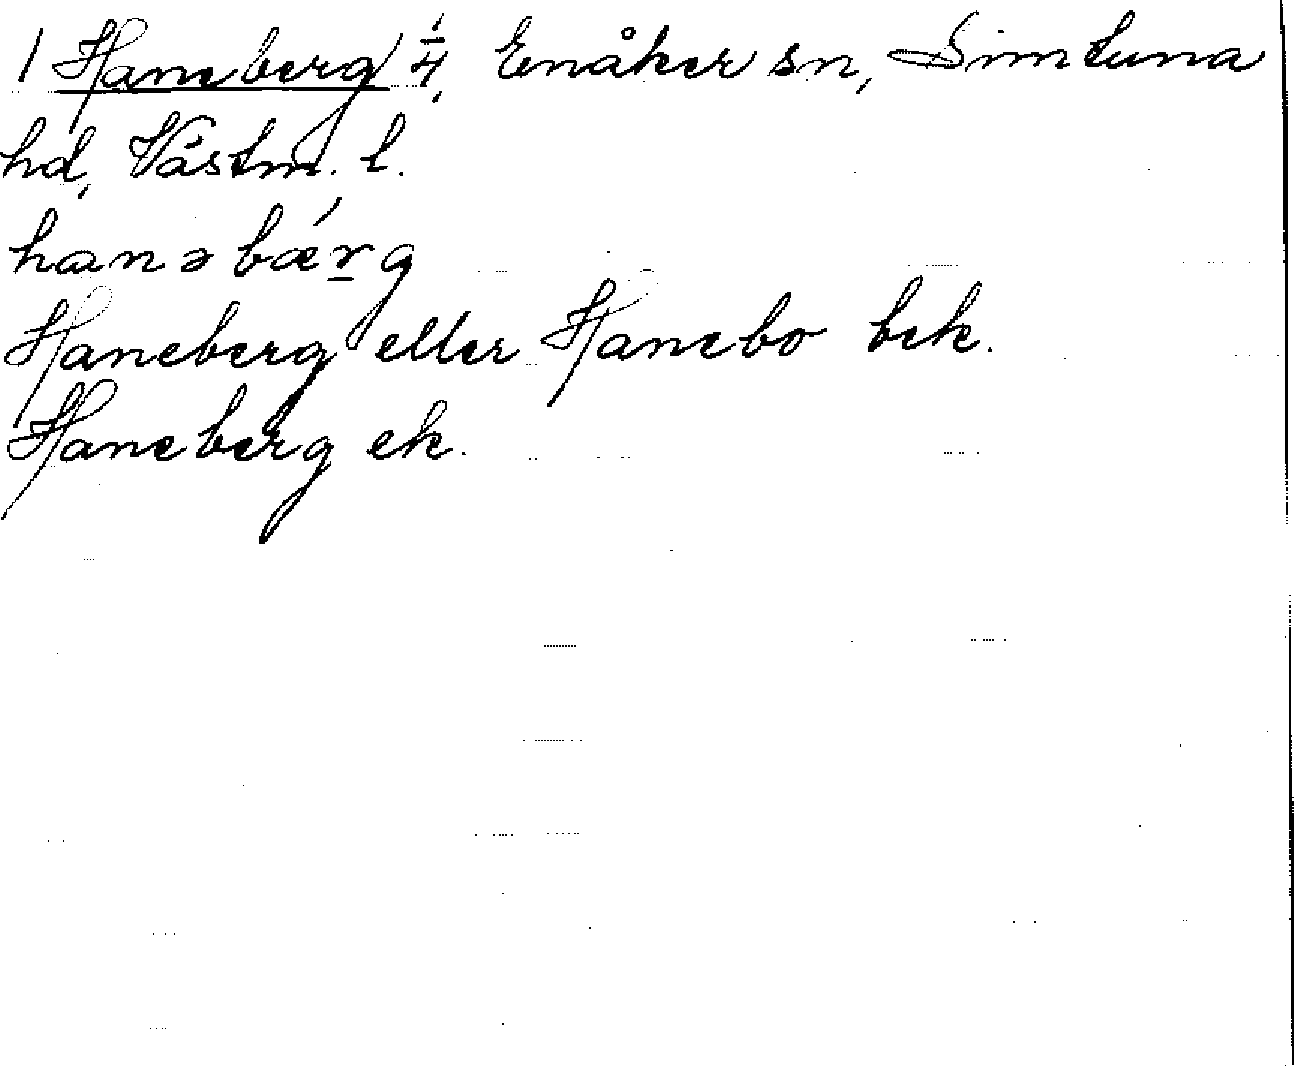 1 Haneberg 1/4, Enåker sn, Simtuna
hd, Västm. l.
hanəbǽrg
Haneberg eller Hanebo bek.
Haneberg ek.